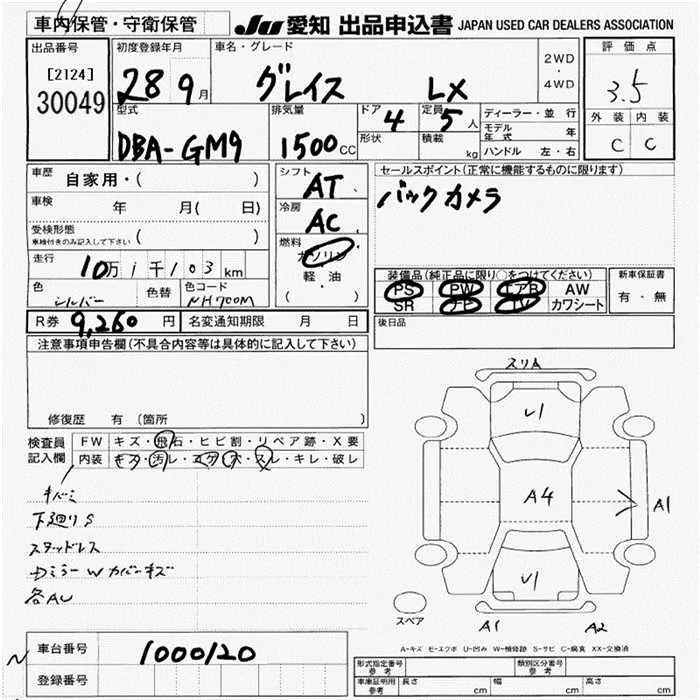 車内保管・守衛保管
JU 愛知 出品申込書 JAPAN USED CAR DEALERS ASSOCIATION
出品番号
[2124]
30049
初度登録年月
28 9月
車名・グレード
グレイス LX
2WD
・
4WD
評価点
3.5
外装 内装
C C
型式
DBA-GM9
排気量
1500 CC
ドア 4
形状
定員 5人
積載 kg
ディーラー・並行
モデル年式 年
ハンドル 左・右
車歴 自家用・( )
車検 年 月( 日)
受検形態
車検付きのみ記入して下さい ( )
走行 10万1千103km
色 シルバー 色替 色コード NH700M
シフト AT
冷房 AC
燃料
ガソリン
軽油
( )
セールスポイント(正常に機能するものに限ります)
バックカメラ
装備品(純正品に限り○をつけてください)
PS PW エアB AW
SR ナビ TV カワシート
新車保証書
有・無
R券 9,260円 名変通知期限 月 日
後日品
注意事項申告欄(不具合内容等は具体的に記入して下さい)
修復歴 有 〔箇所 〕
検査員記入欄
FW キズ・飛石・ヒビ割・リペア跡・X要
内装 キズ・汚レ・コゲ・穴・スレ・キレ・破レ
キバミ
下廻りS
スタッドレス
DミラーWカバーキズ
各AU
スリA
U1
A4
A1
U1
スペア
A1 A2
A-キズ E-エクボ U-凹み W-補修跡 S-サビ C-腐食 XX-交換済
車台番号 1000120
登録番号
形式指定番号 参考
類別区分番号 参考
車庫証明用 参考 長さ cm 幅 cm 高さ cm